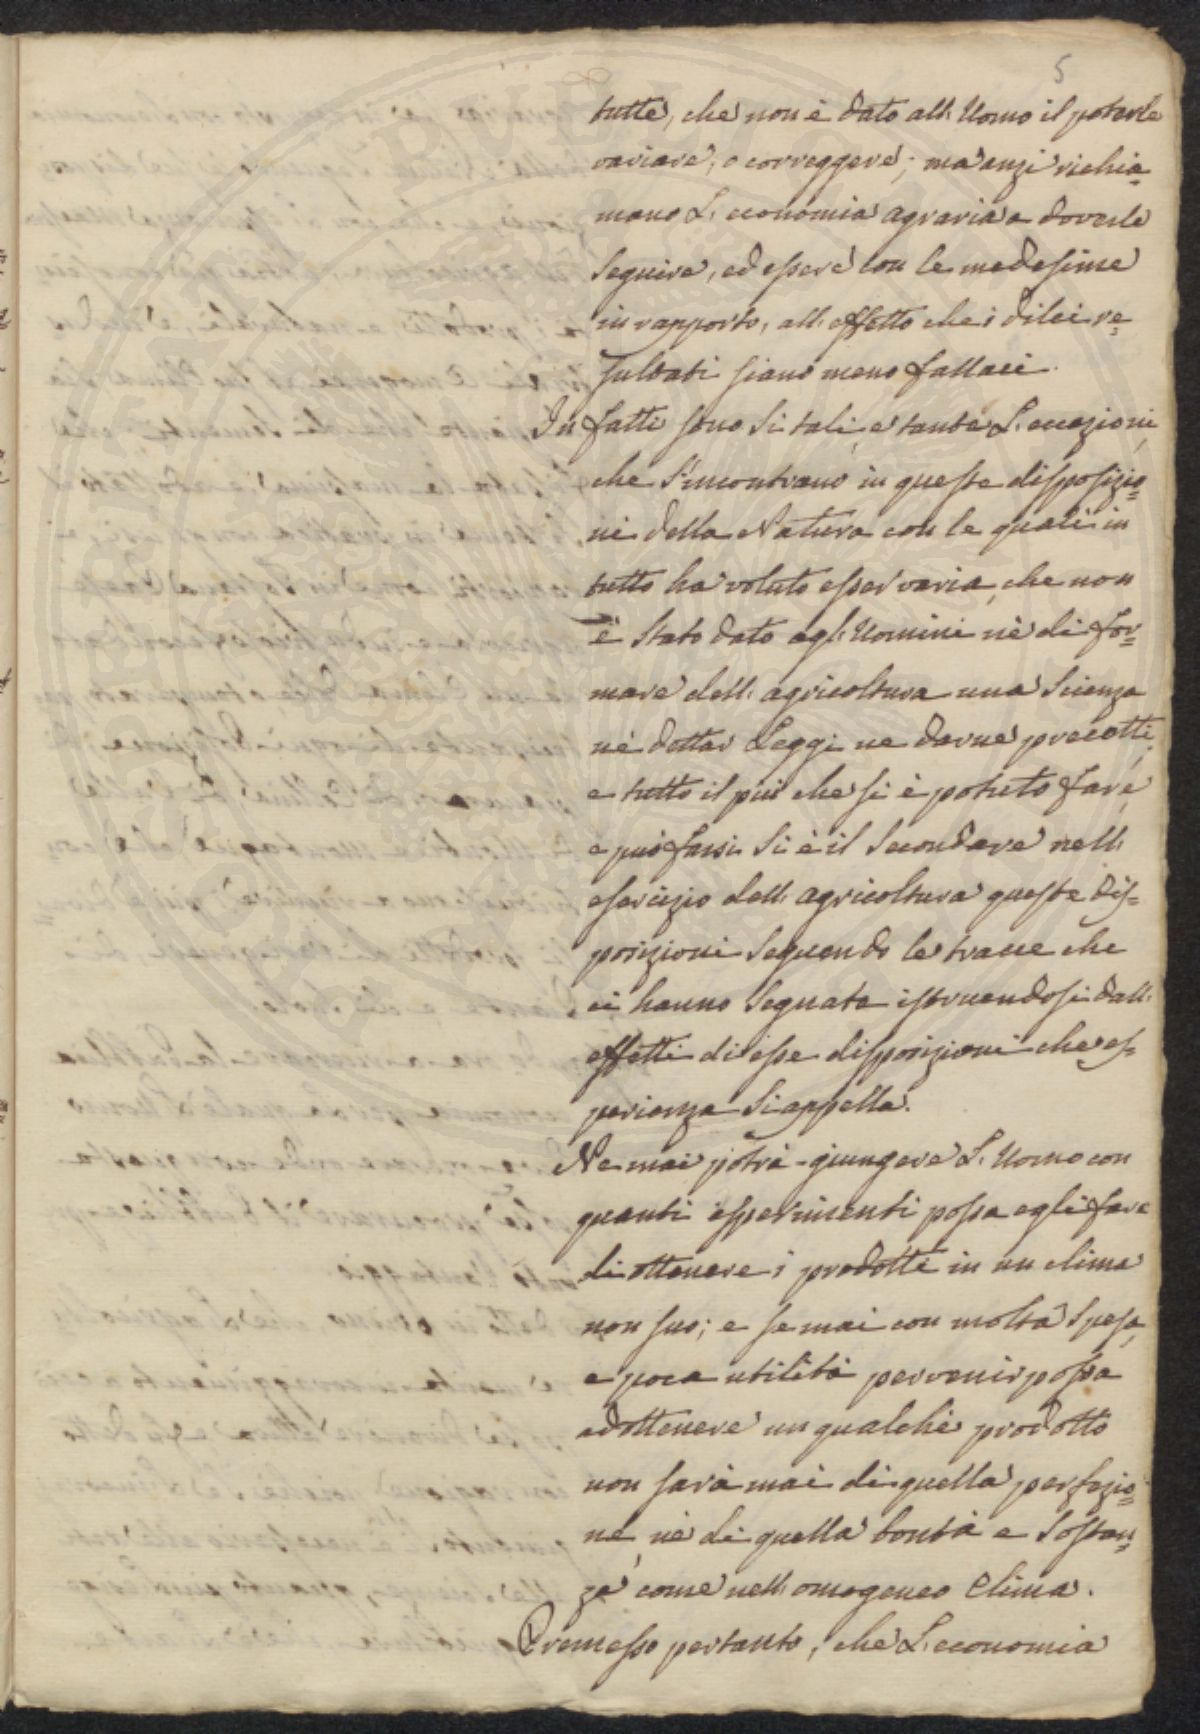 5
tutte, che non è dato all' Uomo il poterle
variare, o correggere; ma anzi richia=
mano L' economia agraria a doverle
seguire, ed essere con le medesime
in rapporto, all' effetto che i di lei re=
sultati siano meno fallaci.
In fatti sono si tali, e tante L' eccezioni,
che s'incontrano in queste disposizio=
ni della Natura con le quali in
tutto ha voluto esser varia, che non
è stato dato agl' Uomini nè di for=
mare dell' agricoltura una Scienza
nè dettar Leggi ne darne precetti,
e tutto il più che si è potuto fare,
e può farsi si è il secondare nell'
esercizio dell' agricoltura queste dis=
posizioni seguendo le tracce che
ci hanno segnate istruendosi dall'
effetti di esse disposizioni che es=
perienza si appella.
Ne mai potrà giungere L' Uomo con
quanti esperimenti possa egli fare
di ottenere i prodotti in un clima
non suo; e se mai con molta spesa,
e poca utilità pervenir possa
ad ottenere un qualche prodotto
non sarà mai di quella perfezio=
ne, nè di quella bontà e sostan=
za come nell' omogeneo Clima.
Premesso pertanto, che L' economia